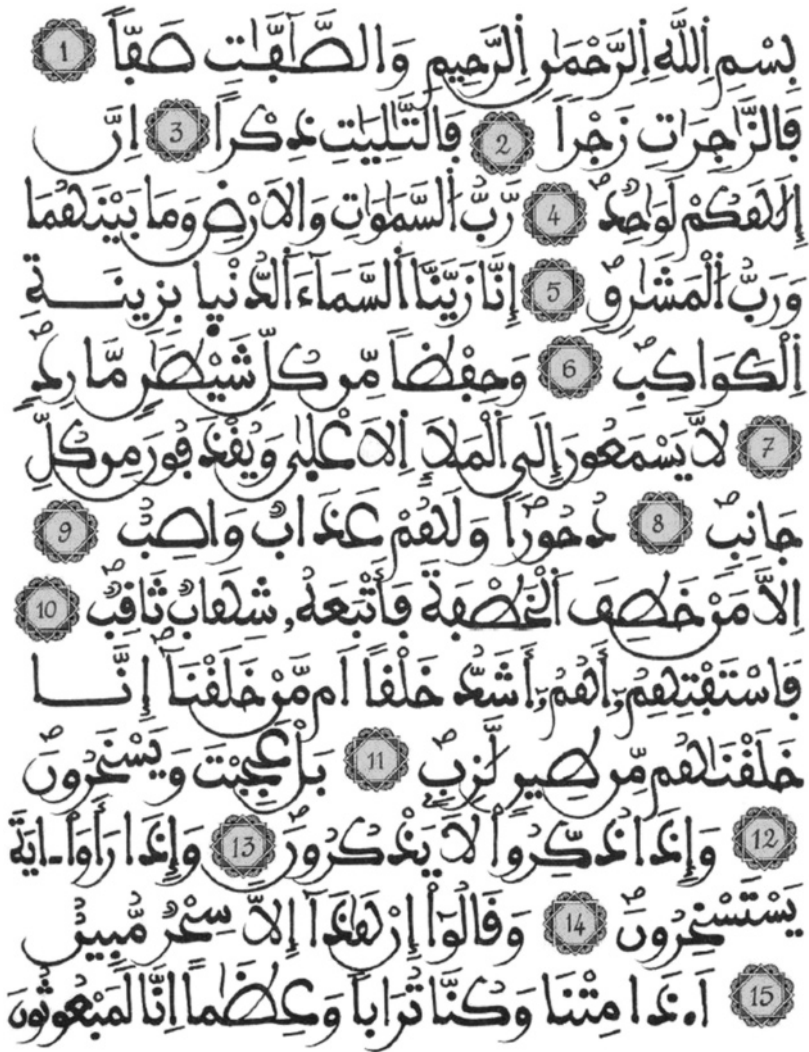 بِسْمِ اِللَّهِ اِلرَّحْمَٰنِ اِلرَّحِيمِ وَالصَّٰٓفَّٰتِ صَفّاً 1
فَالزَّٰجِرَٰتِ زَجْراً 2 فَالتَّٰلِيَٰتِ ذِكْراً 3 اِنَّ
إِلَٰهَكُمْ لَوَٰحِدٌ 4 رَّبُّ اُلسَّمَٰوَٰتِ وَالَارْضِ وَمَا بَيْنَهُمَا
وَرَبُّ اُلْمَشَٰرِقِ 5 إِنَّا زَيَّنَّا اَلسَّمَآءَ اَلدُّنْيٰا بِزِينَةِ
اِلْكَوَاكِبِ 6 وَحِفْظاً مِّن كُلِّ شَيْطَٰنٍ مَّارِدٍ
7 لَّا يَسْمَعُونَ إِلَى اَلْمَلَإِ اِلَاعْلٰى وَيُقْذَفُونَ مِن كُلِّ
جَانِبٍ 8 دُحُوراً وَلَهُمْ عَذَابٌ وَاصِبٌ 9
اِلَّا مَنْ خَطِفَ اَلْخَطْفَةَ فَأَتْبَعَهُۥ شِهَابٌ ثَاقِبٌ 10
فَاسْتَفْتِهِمُۥٓ أَهُمُۥٓ أَشَدُّ خَلْقاً اَم مَّنْ خَلَقْنَآ إِنَّا
خَلَقْنَٰهُم مِّن طِينٍ لَّازِبٍ 11 بَلْ عَجِبْتَ وَيَسْخَرُونَ
12 وَإِذَا ذُكِّرُواْ لَا يَذْكُرُونَ 13 وَإِذَا رَأَوَاْ ـايَةً
يَسْتَسْخِرُونَ 14 وَقَالُوٓاْ إِنْ هَٰذَآ إِلَّا سِحْرٌ مُّبِينٌ
15 اَ.ذَا مِتْنَا وَكُنَّا تُرَاباً وَعِظَٰماً اِنَّا لَمَبْعُوثُونَ